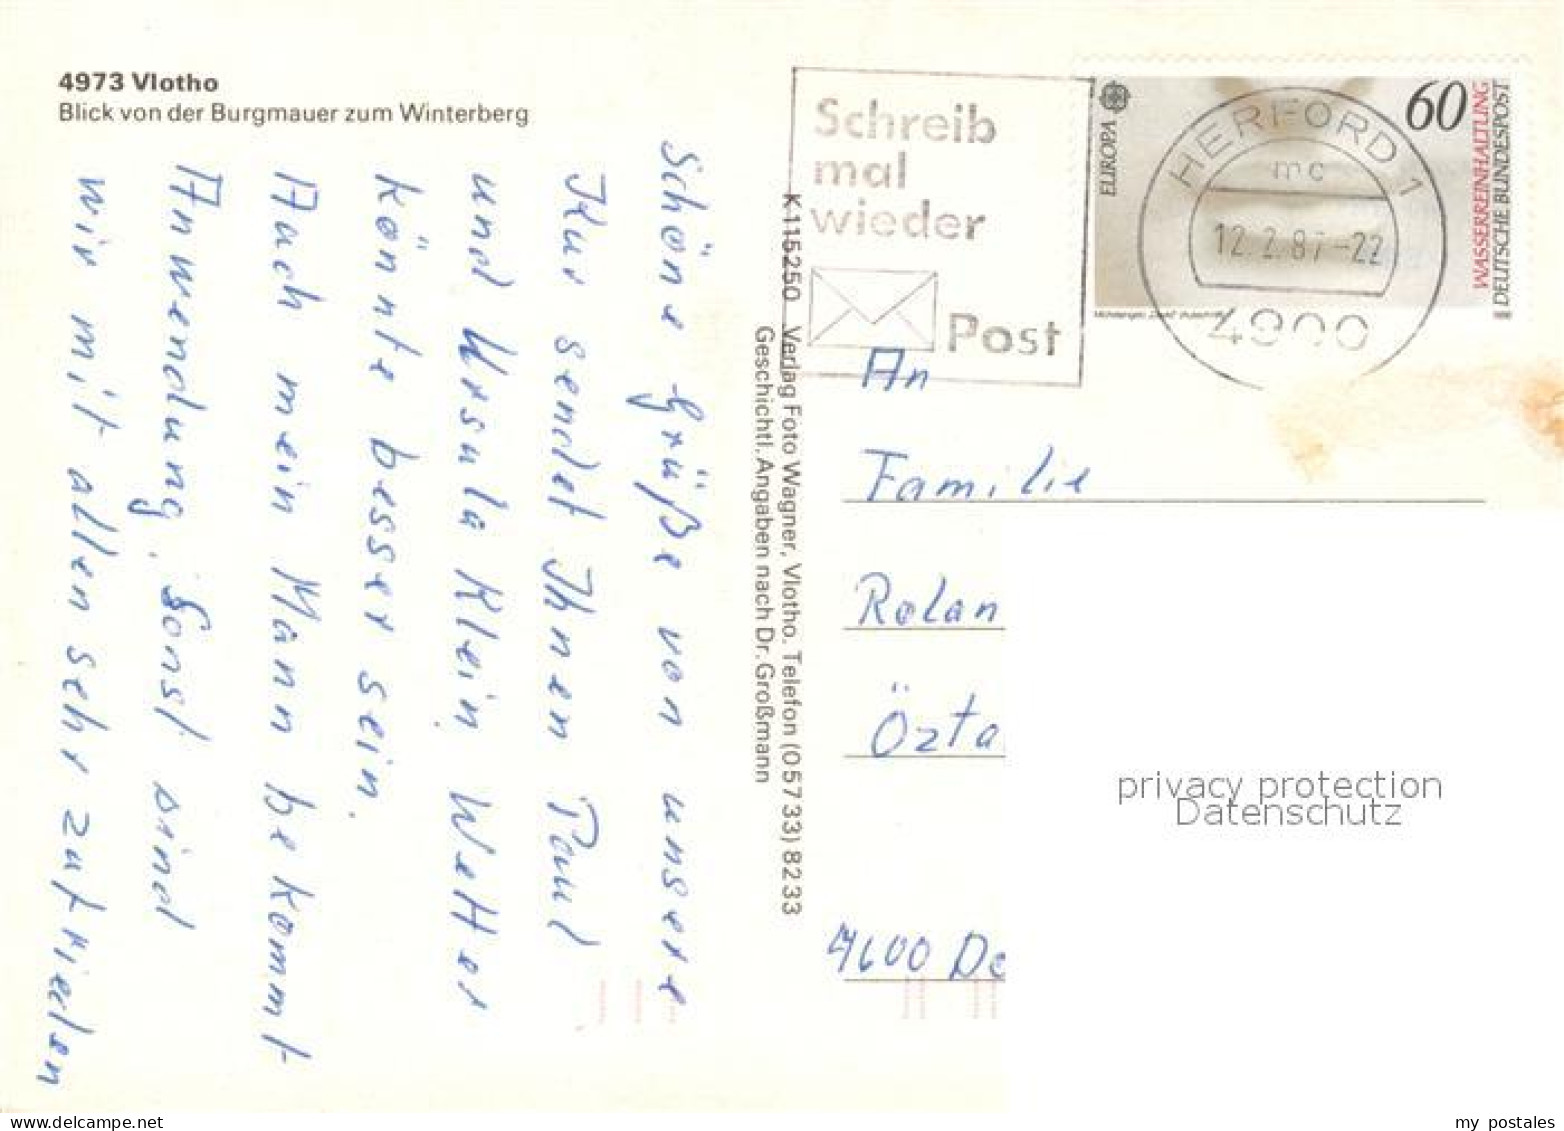 4973 Vlotho
Blick von der Burgmauer zum Winterberg
Schöne Grüße von unsere
Kur sendet Ihnen Paul
und Ursula Klein Wetter
könnte besser sein.
Auch mein Mann bekommt
Anwendung. Sonst sind
wir mit allen sehr zufrieden
K115250 Verlag Foto Wagner, Vlotho. Telefon (05733) 8233
Geschichtl. Angaben nach Dr. Großmann
Schreib
mal
wieder
Post
EUROPA
60
WASSERREINHALTUNG
DEUTSCHE BUNDESPOST
HERFORD 1
mc
12.2.87-22
4900
An
Familie
Rolan
Özta
4600 Do
privacy protection
Datenschutz
delcampe.net
my_postales